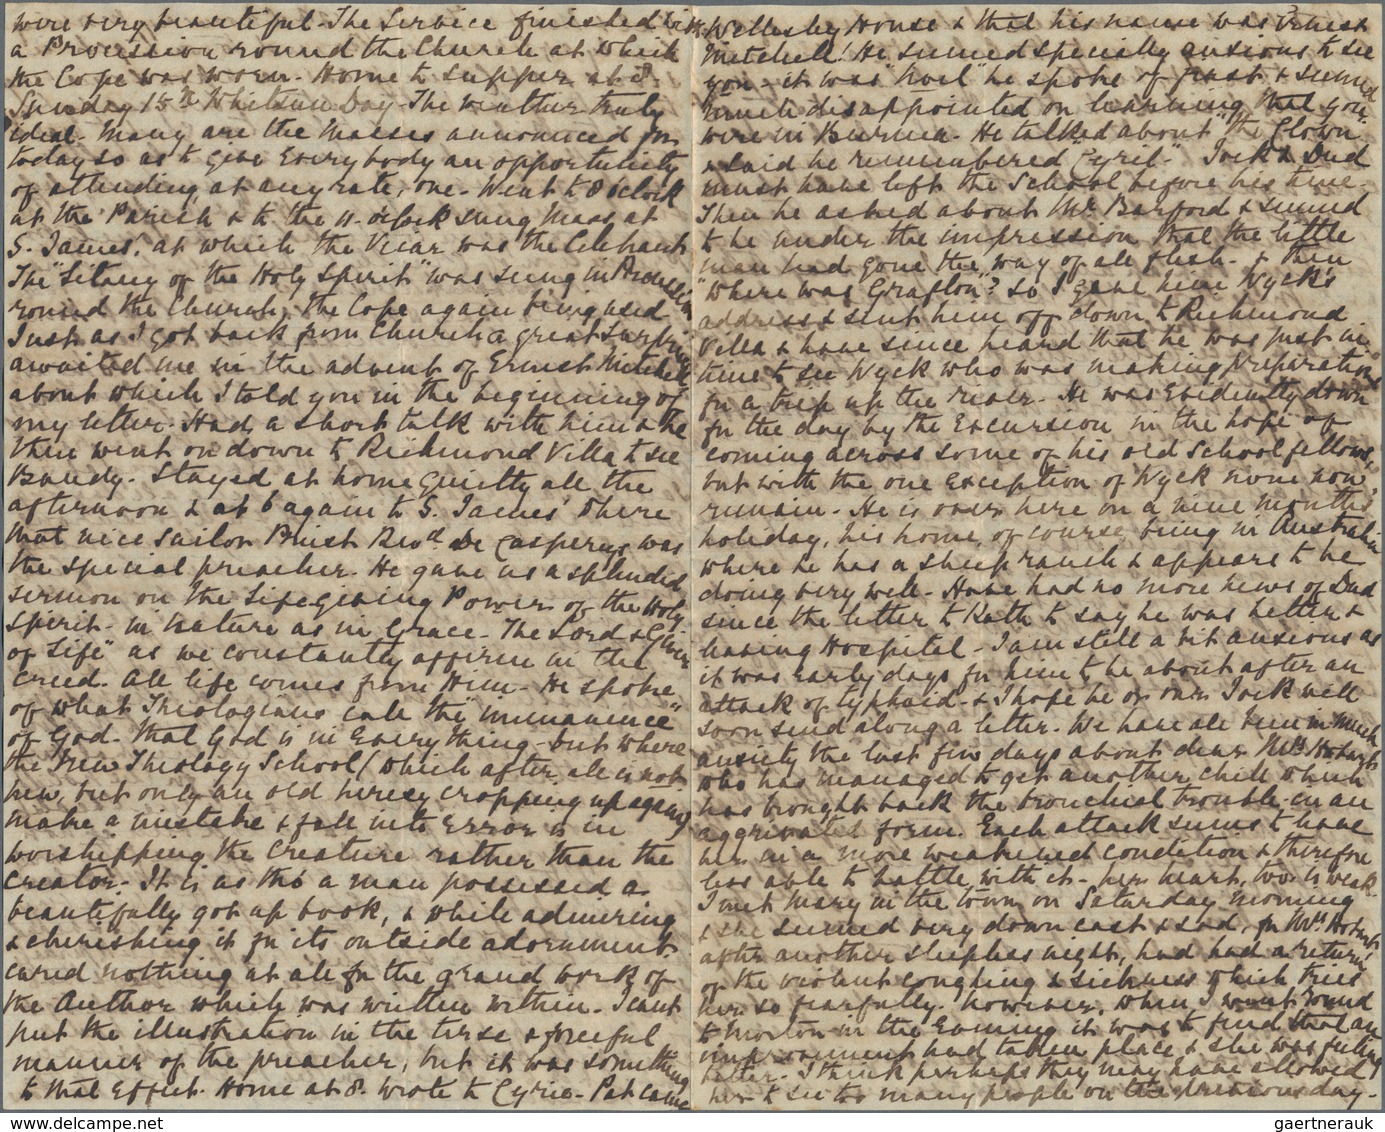 were very beautiful. The Service finished with
a Procession round the Church at which
the Cope was worn. Home to supper at 8.
Sunday 15th Whitsun Day. The weather truly
ideal. Many are the Masses announced for
today so as to give Everybody an opportunity
of attending at any rate, one. Went to 8 o'clock
at the Parish & to the 11. o'clock sung Mass at
S. James', at which the Vicar was the Celebrant
The "Litany of the Holy Spirit" was sung in Procession
round the Church, the Cope again being used
Just as I got back from Church a great Surprise
awaited me in the advent of Ernest Mitchell
about which I told you in the beginning of
my letter. Had a short talk with him & he
then went on down to Richmond Villa to see
Bundy. Stayed at home quietly all the
afternoon & at 6 again to S. James' where
that nice sailor Priest Revd De was
the special preacher. He gave us a splendid
sermon on the Life giving Power of the Holy
Spirit - in Nature as in Grace - "The Lord & Giver
of Life" as we constantly affirm in the
creed. All life comes from Him - He spoke
of what Theologians call the "immanence"
of God - that God is in Everything - but where
the New Theology School (which after all is not
new, but only an old heresy cropping up again)
make a mistake & fall into Error is in
worshipping the Creature rather than the
Creator. It is as tho' a man possessed a
beautifully got up book, & while admiring
& cherishing it for its outside adornment
cared nothing at all for the grand work of
the Author which was written within. I can't
put the illustration in the terse & forceful
manner of the preacher, but it was something
to that Effect. Home at 8. wrote to Cyric. Pat came
Wellesley House & that his name was Ernest
Mitchell! He seemed specially anxious to see
you - it was "Noel" he spoke of first & seemed
much disappointed on learning that you
were in Burma. He talked about "the Clown"
& said he remembered "Cyril." Jack & Dud
must have left the School before his time.
Then he asked about Mr Barford & seemed
to be under the impression that the little
man had gone the way of all flesh. & then
"Where was Grafton"? So I gave him Wyck's
address & sent him off down to Richmond
Villa & have since heard that he was just in
time to see Wyck who was making preparations
for a trip up the river. He was Evidently down
for the day by the Excursion in the hope of
coming across some of his old School fellows,
but with the one Exception of Wyck none now
remain. He is over here on a nine months'
holiday, his home, of course, being in Australia
where he has a sheep ranch & appears to be
doing very well. Have had no more news of Dud
since the letter to Kath to say he was better &
leaving Hospital. I am still a bit anxious as
it was Early days for him to be about after an
attack of typhoid. & I hope he or our Jack will
soon send along a letter. We have all been in much
anxiety the last few days about dear Mrs
who has managed to get another chill which
has brought back the bronchial trouble in an
aggrivated form. Each attack seems to have
her in a more weakened condition & therefore
less able to battle with it - her heart, too is weak.
I met Mary in the town on Saturday morning
& she seemed very down cast & sad, for Mrs
after another sleepless night, had had a return
of the violent coughing & sickness which tries
her so fearfully. However, when I went round
to Morton in the Evening it was to find that an
improvement had taken place & she was feeling
better. I think perhaps they may have allowed
her to see too many people on the previous day.
gaertnerauk